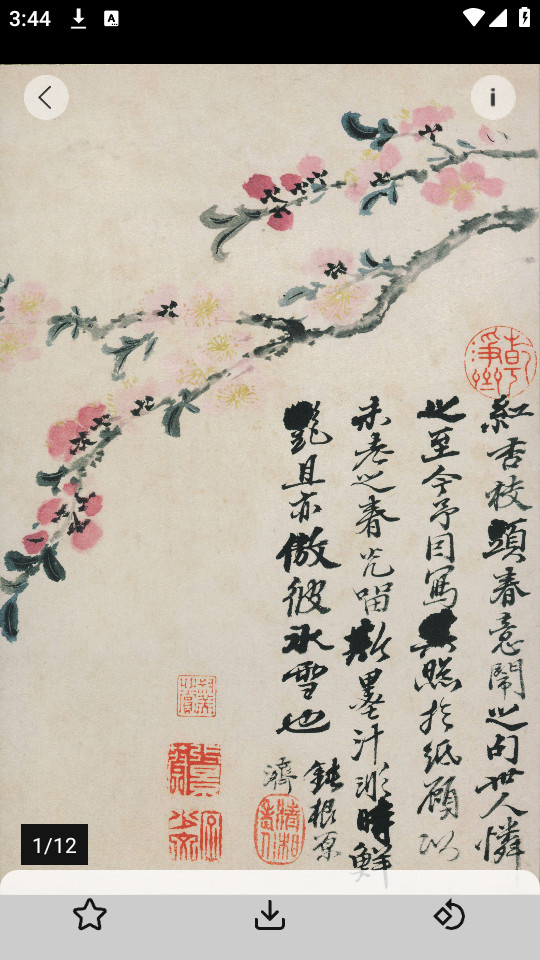 3:44
紅杏枝頭春意鬧之句世人憐
之至今予因寫其照於紙顧以
未老之春光留斯墨汁時鮮
艷且亦傲彼冰雪也
鈍根原
濟
清湘老人
1/12